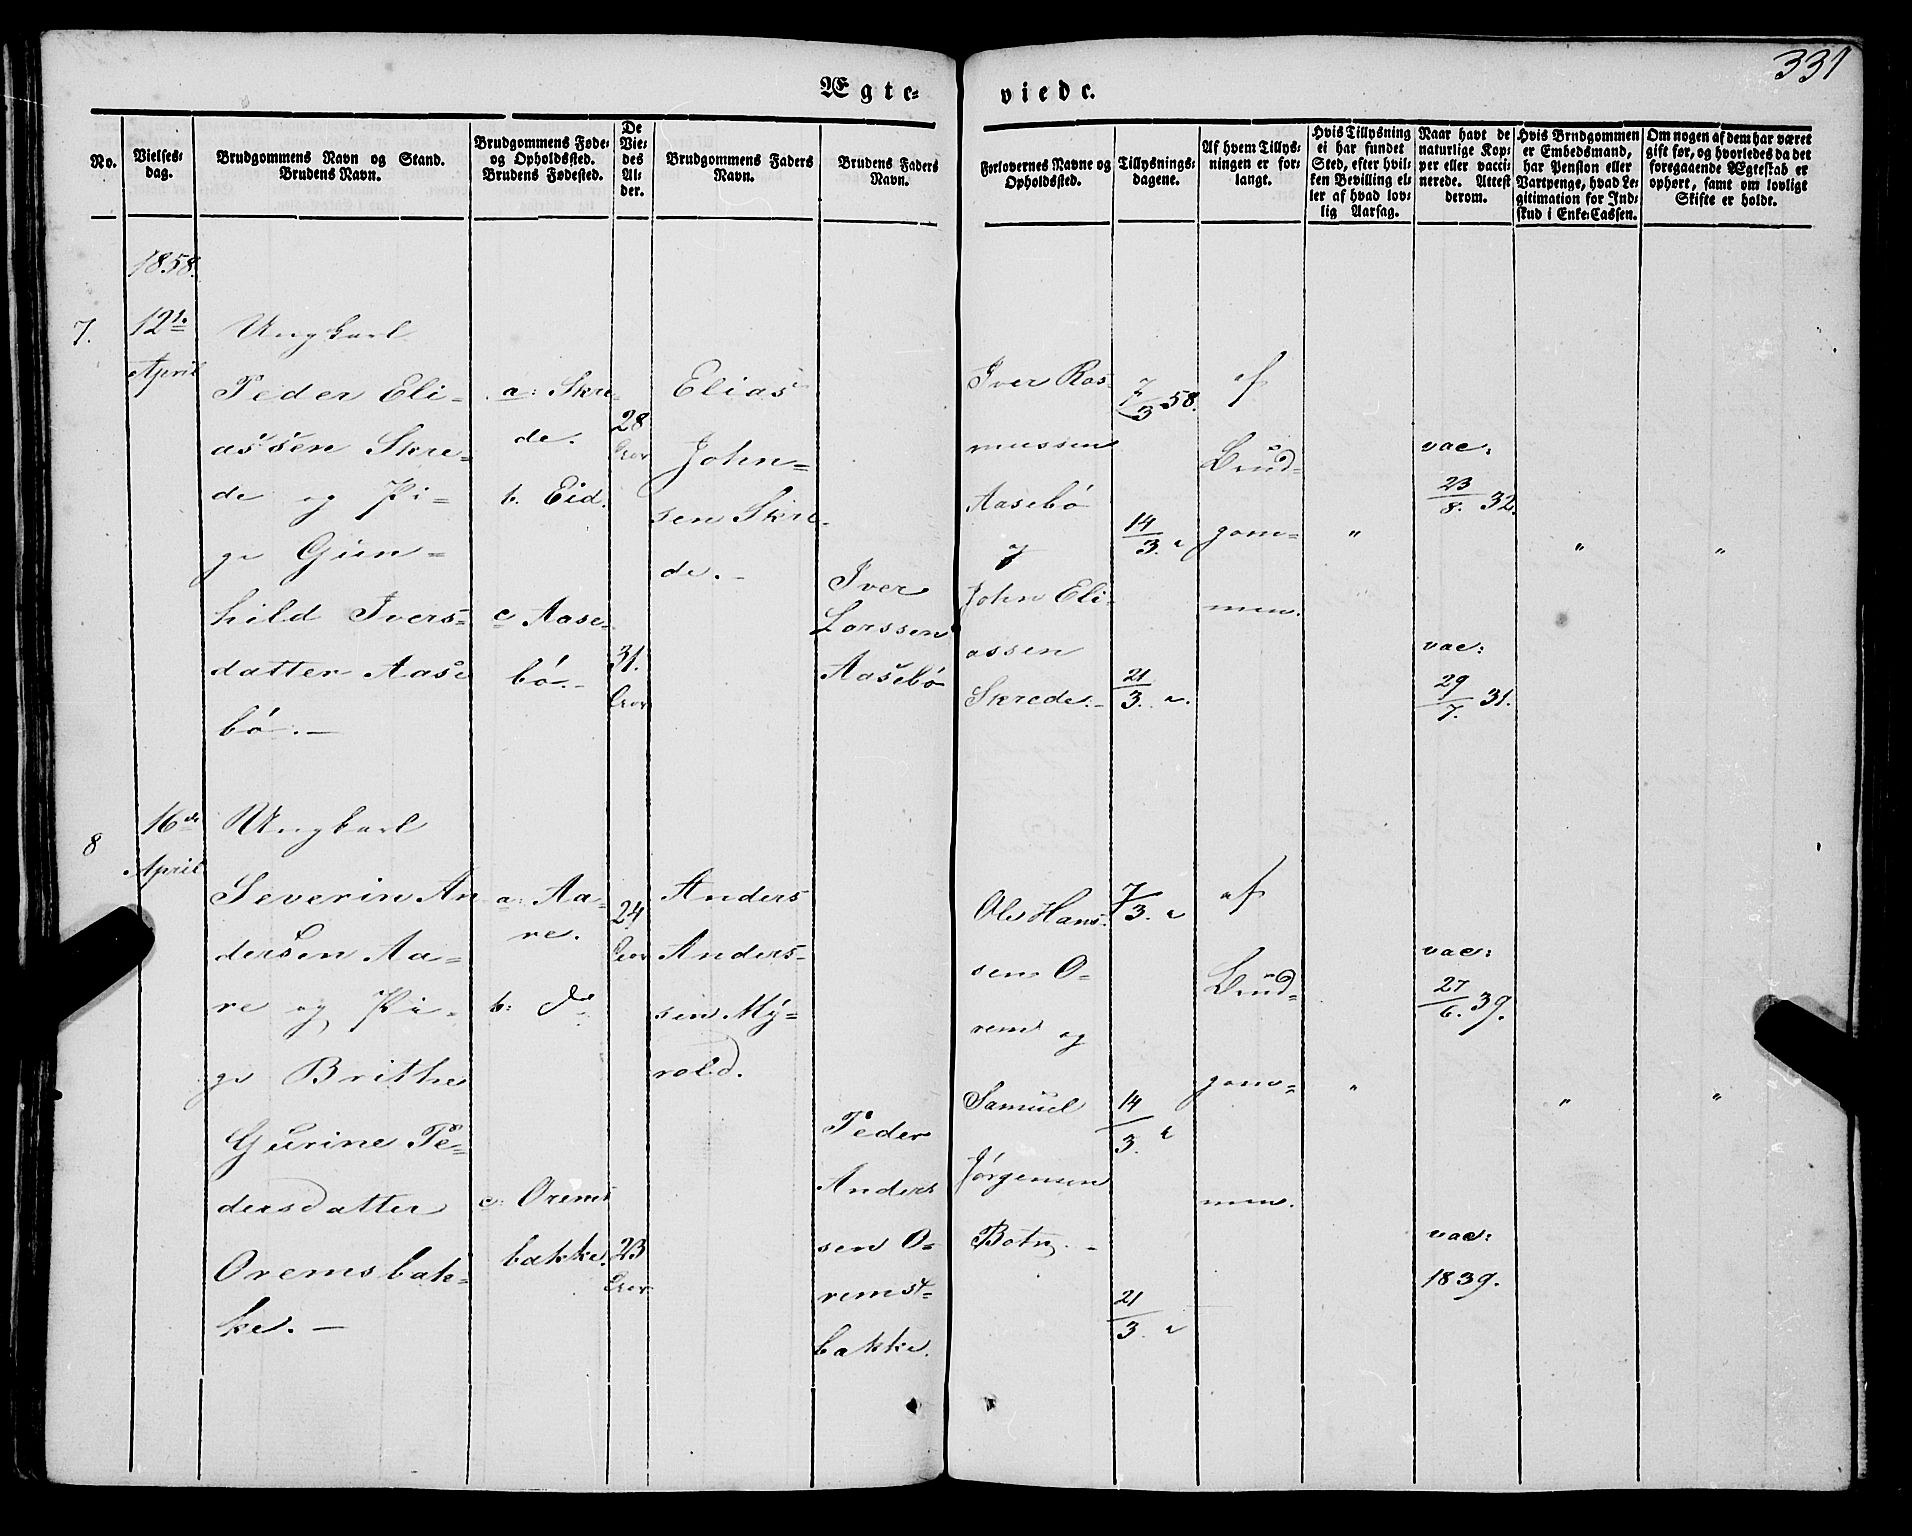 331
Ægte-
viede.
No.
Vielses-
dag.
Brudgommens Navn og Stand.
Brudens Navn.
Brudgommens Føde-
og Opholdssted.
Brudens Fødested.
De
Vie-
des
Al-
der.
Brudgommens Faders
Navn.
Brudens Faders
Navn.
Forlovernes Navne og
Opholdssted.
Tillysnings-
dagene.
Af hvem Tillys-
ningen er for-
langt.
Hvis Tillysning
ei har fundet
Sted, efter hvil-
ken Bevilling el-
ler af hvad lov-
lig Aarsag.
Naar havt de
naturlige Kop-
per eller vacci-
nerede. Attest
derom.
Hvis Brudgommen
er Embedsmand,
har Pension eller
Vartpenge, hvad Le-
gitimation for Ind-
skud i Enke-Cassen.
Om nogen af dem har været
gift før, og hvorledes da det
foregaaende Ægteskab er
ophørt, samt om lovligt
Skifte er holdt.
1858.
7.
12te
April
Ungkarl
Peder Eli-
assen Skre-
de og Pi-
ge Gun-
hild Ivers-
datter Aase
bö.
a: Skre-
de.
b. Eid.
c Aase-
bö.
28
Aar
31.
Aar
Elias
John-
sen Skre-
de.
Iver
Larssen
Aasebö
Iver Ras-
mussen
Aasebö
og
John Eli-
assen
Skrede.
7/3 58.
14/3. "
21/3. ".
af
Brud-
gom-
men.
"
vac:
23/8. 32.
vac:
29/7. 31.
"
"
8
16de
April
Ungkarl
Severin An
dersen Aa-
re og Pi-
ge Brithe
Gurine Pe-
dersdatter
Oremsbak-
ke.
a: Aa-
re.
b: do
c: Orems
bakke.
24
Aar
23
Aar
Anders
Anders-
sen My-
rold.
Peder
Anders
sen O-
rems-
bakke.
Ole Hans-
sen O-
rem og
Samuel
Jörgensen
Botn.
7/3. "
14/3. "
21/3. "
af
Brud-
gom-
men.
"
vac:
27/6. 39.
vac:
1839.
"
"